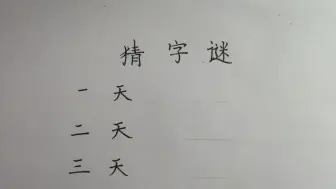 猜字谜
一天
二天
三天